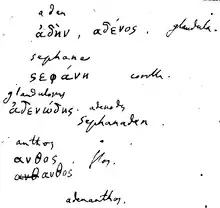 aden
ἀδὴν, ἀδένος. glandula.
sephane
ςεφάνη corolla.
glandulosus
ἀδενώδης adenodes
Sephanaden
anthos
ανθος flos.
ανθανθος
adenanthos.